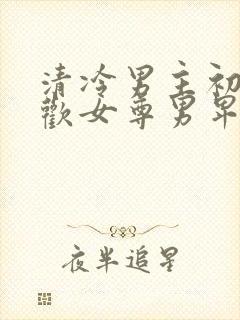 清冷男主初
歡女尊男卑
夜半追星